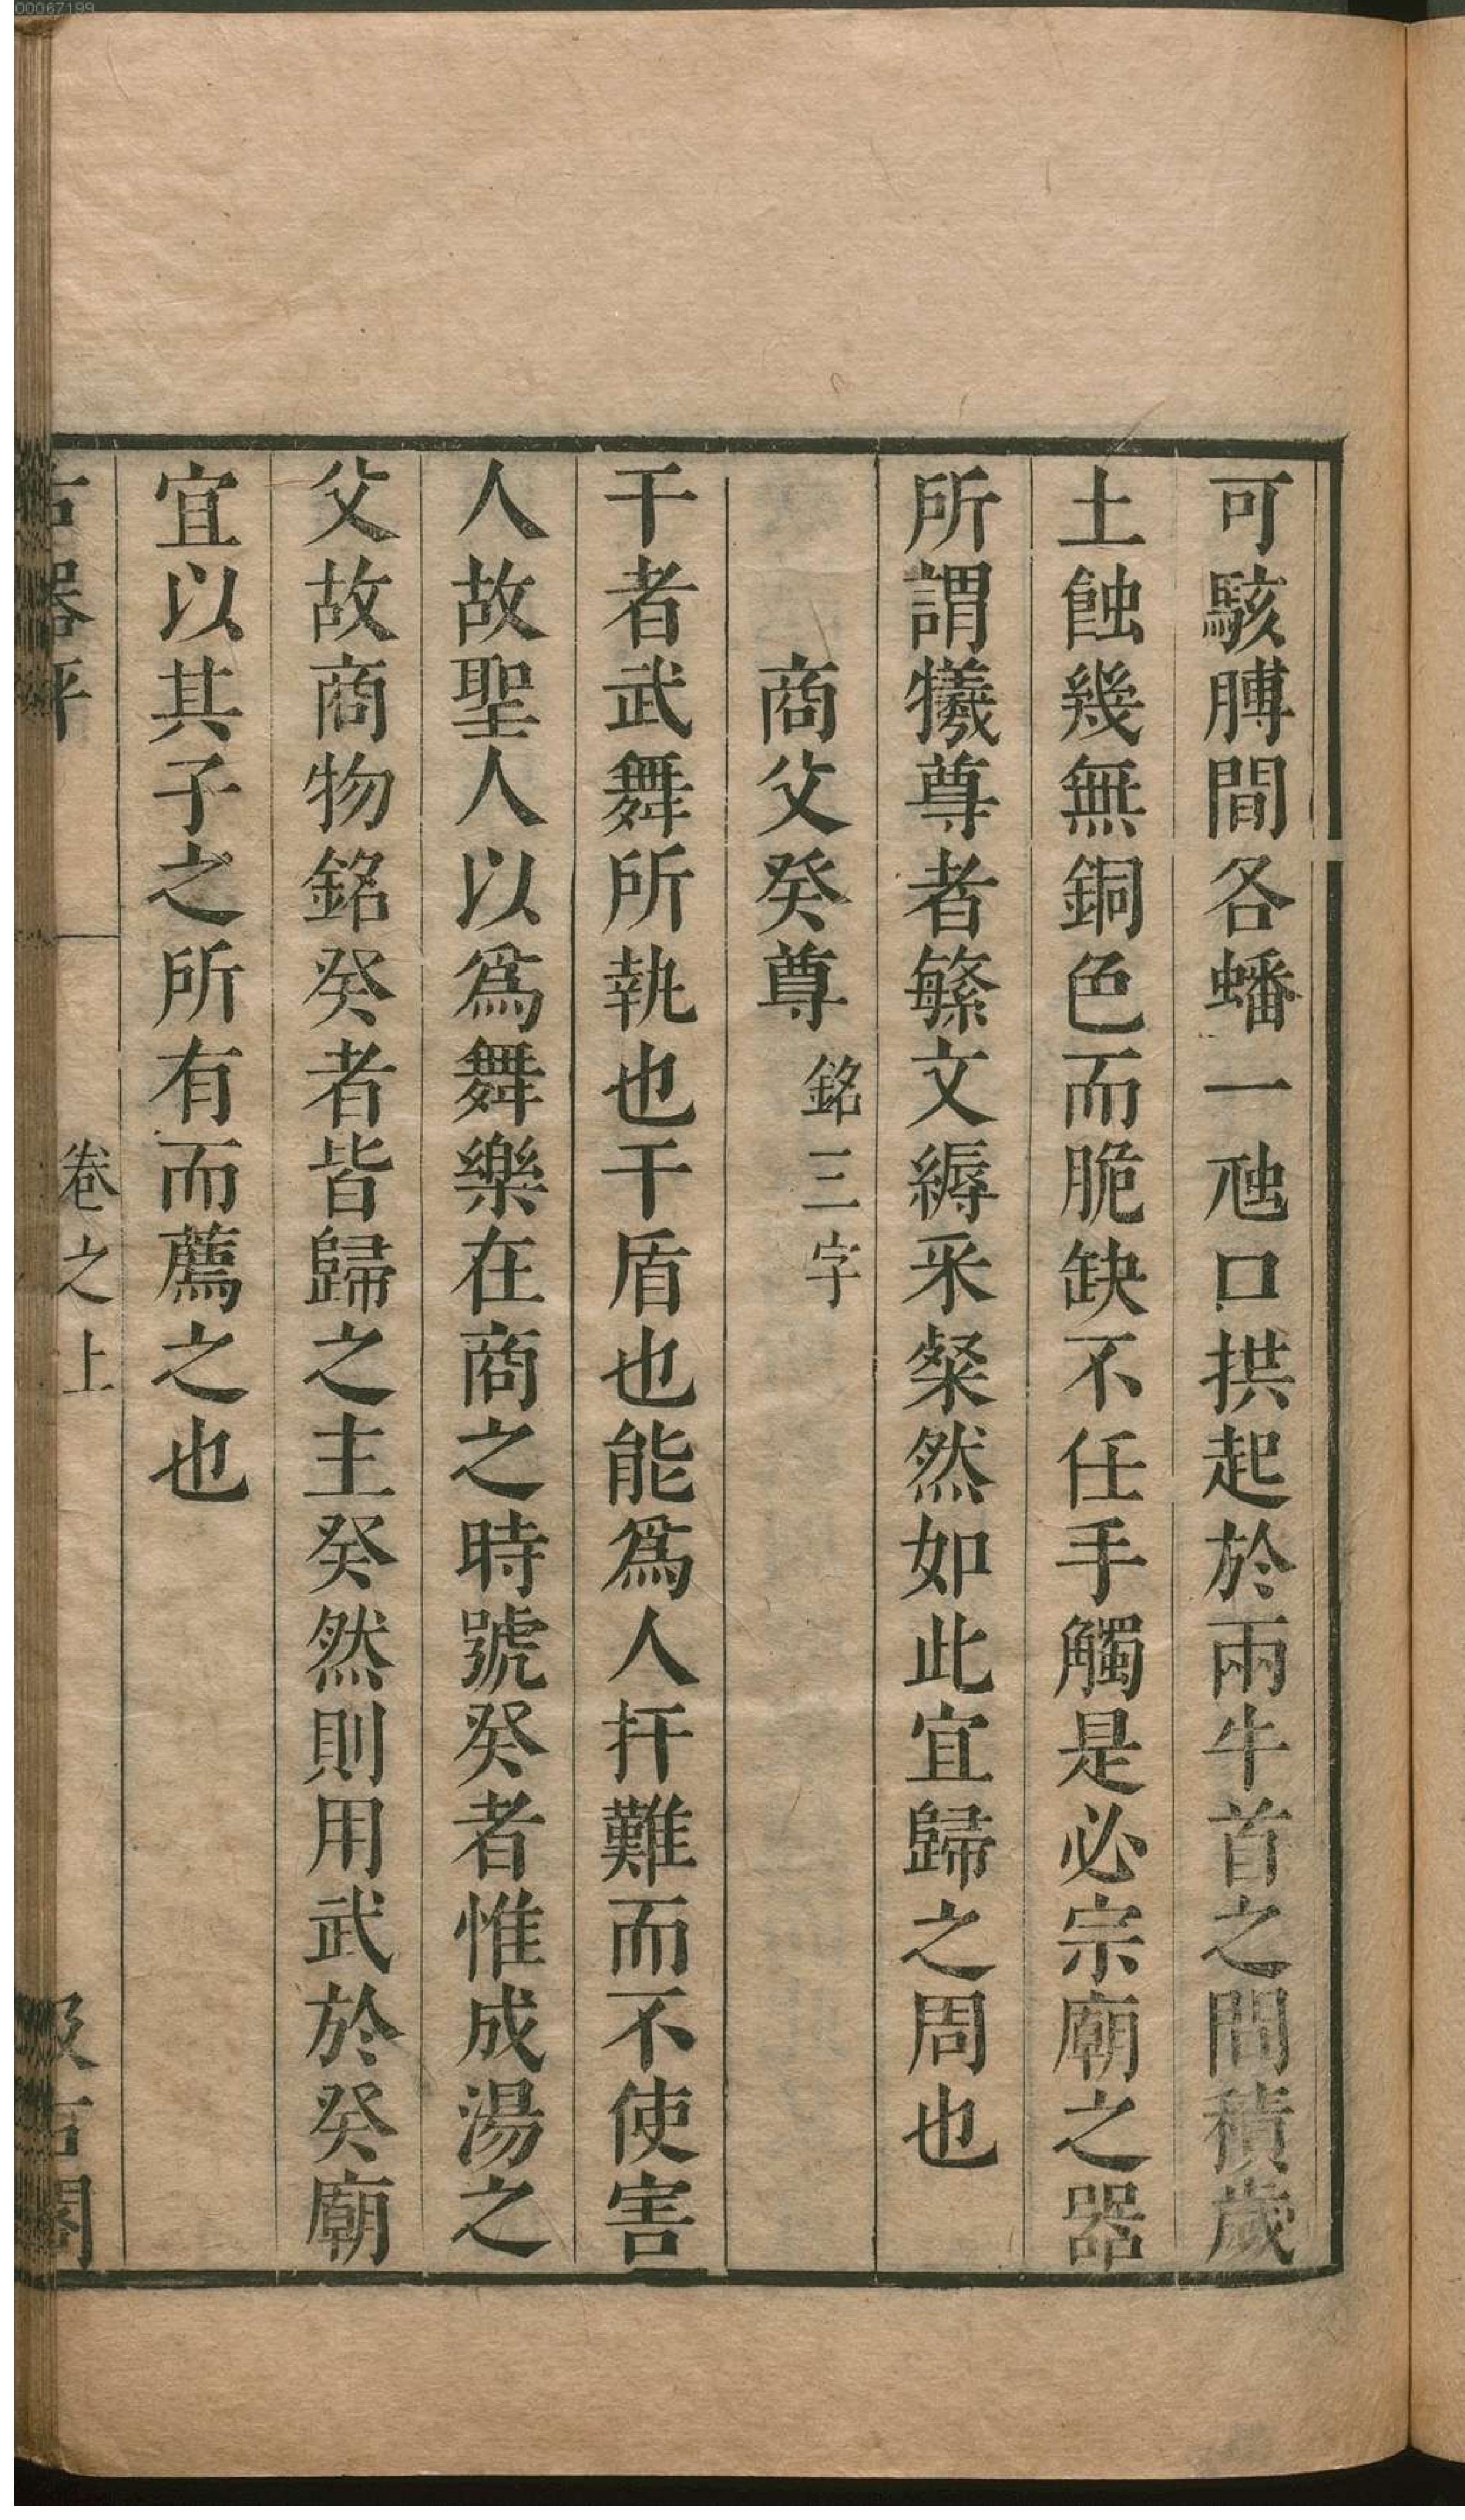 可駭膊間各蟠一虺口拱起於兩牛首之間積歲
土蝕幾無銅色而脆缺不任手觸是必宗廟之器
所謂犧尊者繁文縟采粲然如此宜歸之周也
商父癸尊 銘三字
干者武舞所執也干盾也能爲人扞難而不使害
人故聖人以爲舞樂在商之時號癸者惟成湯之
父故商物銘癸者皆歸之主癸然則用武於癸廟
宜以其子之所有而薦之也
古器評 卷之上 汲古閣
00067199